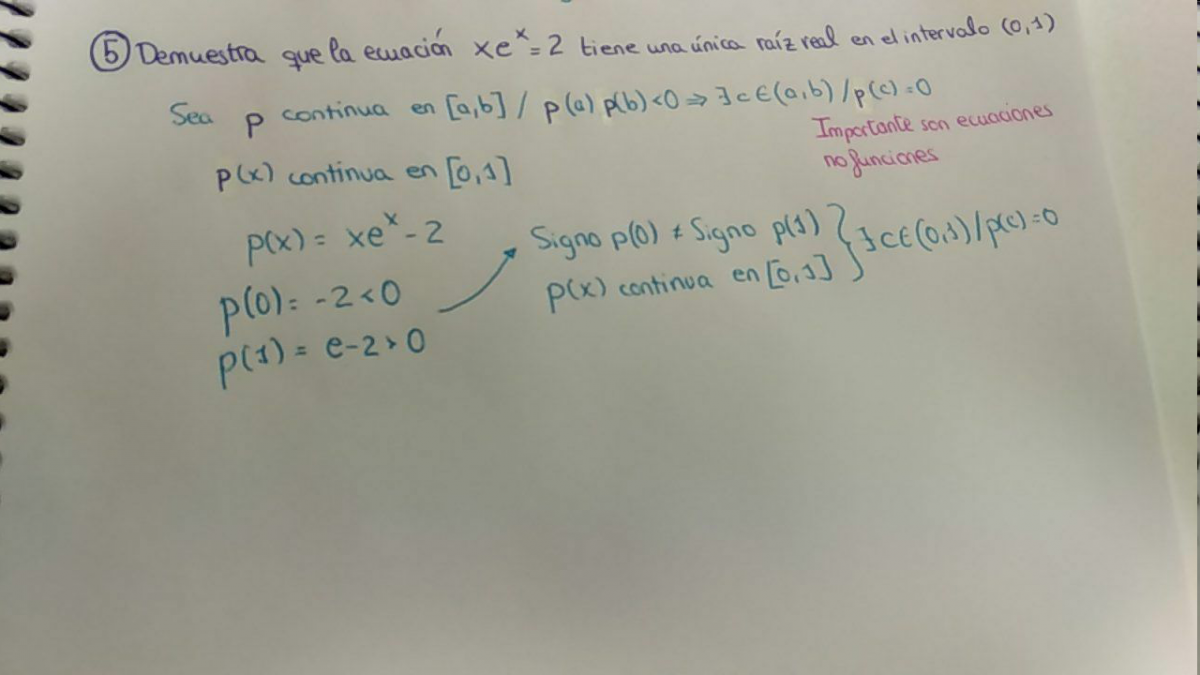 ⑤ Demuestra que la ecuación xeˣ = 2 tiene una única raíz real en el intervalo (0,1)
Sea p continua en [a,b] / p(a) p(b) < 0 ⇒ ∃ c ∈ (a,b) / p(c) = 0
Importante son ecuaciones
no funciones
p(x) continua en [0,1]
p(x) = xeˣ - 2
Signo p(0) ≠ Signo p(1) } ∃ c ∈ (0,1) / p(c) = 0
p(x) continua en [0,1]
p(0) = -2 < 0
p(1) = e-2 > 0